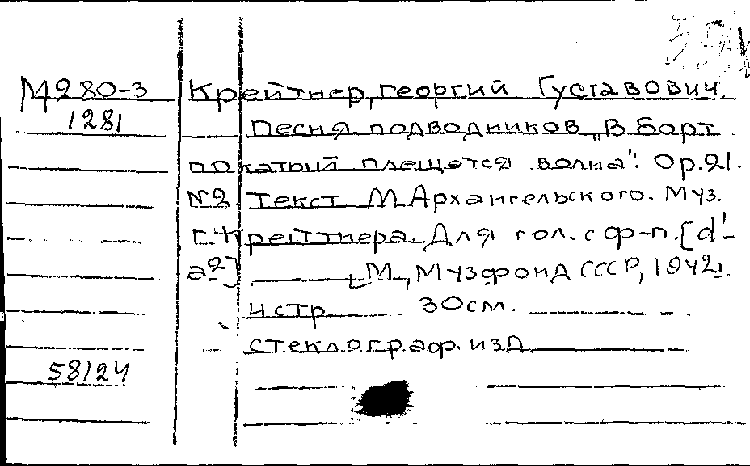 М280-3 Крейтнер, Георгий Густавович.
1281 Песня подводников „В борт
покатый плещется волна". Ор.21.
№2 Текст М.Архангельского. Муз.
Г.Крейтнера. Для гол. с ф-п. [d'-
a2] М., Музфонд СССР, 1942.
4 стр 30см.
стеклограф. изд
58/24